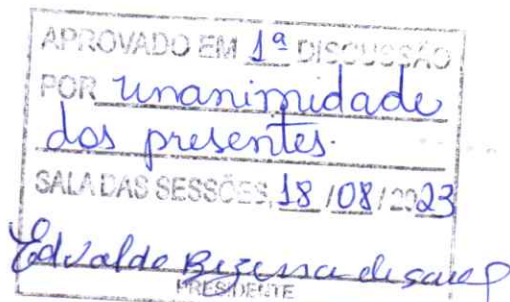 APROVADO EM 1ª DISCUSSÃO
POR unanimidade
dos presentes.
SALA DAS SESSÕES, 18 / 08 / 2023
Edvaldo Bezerra de
PRESIDENTE